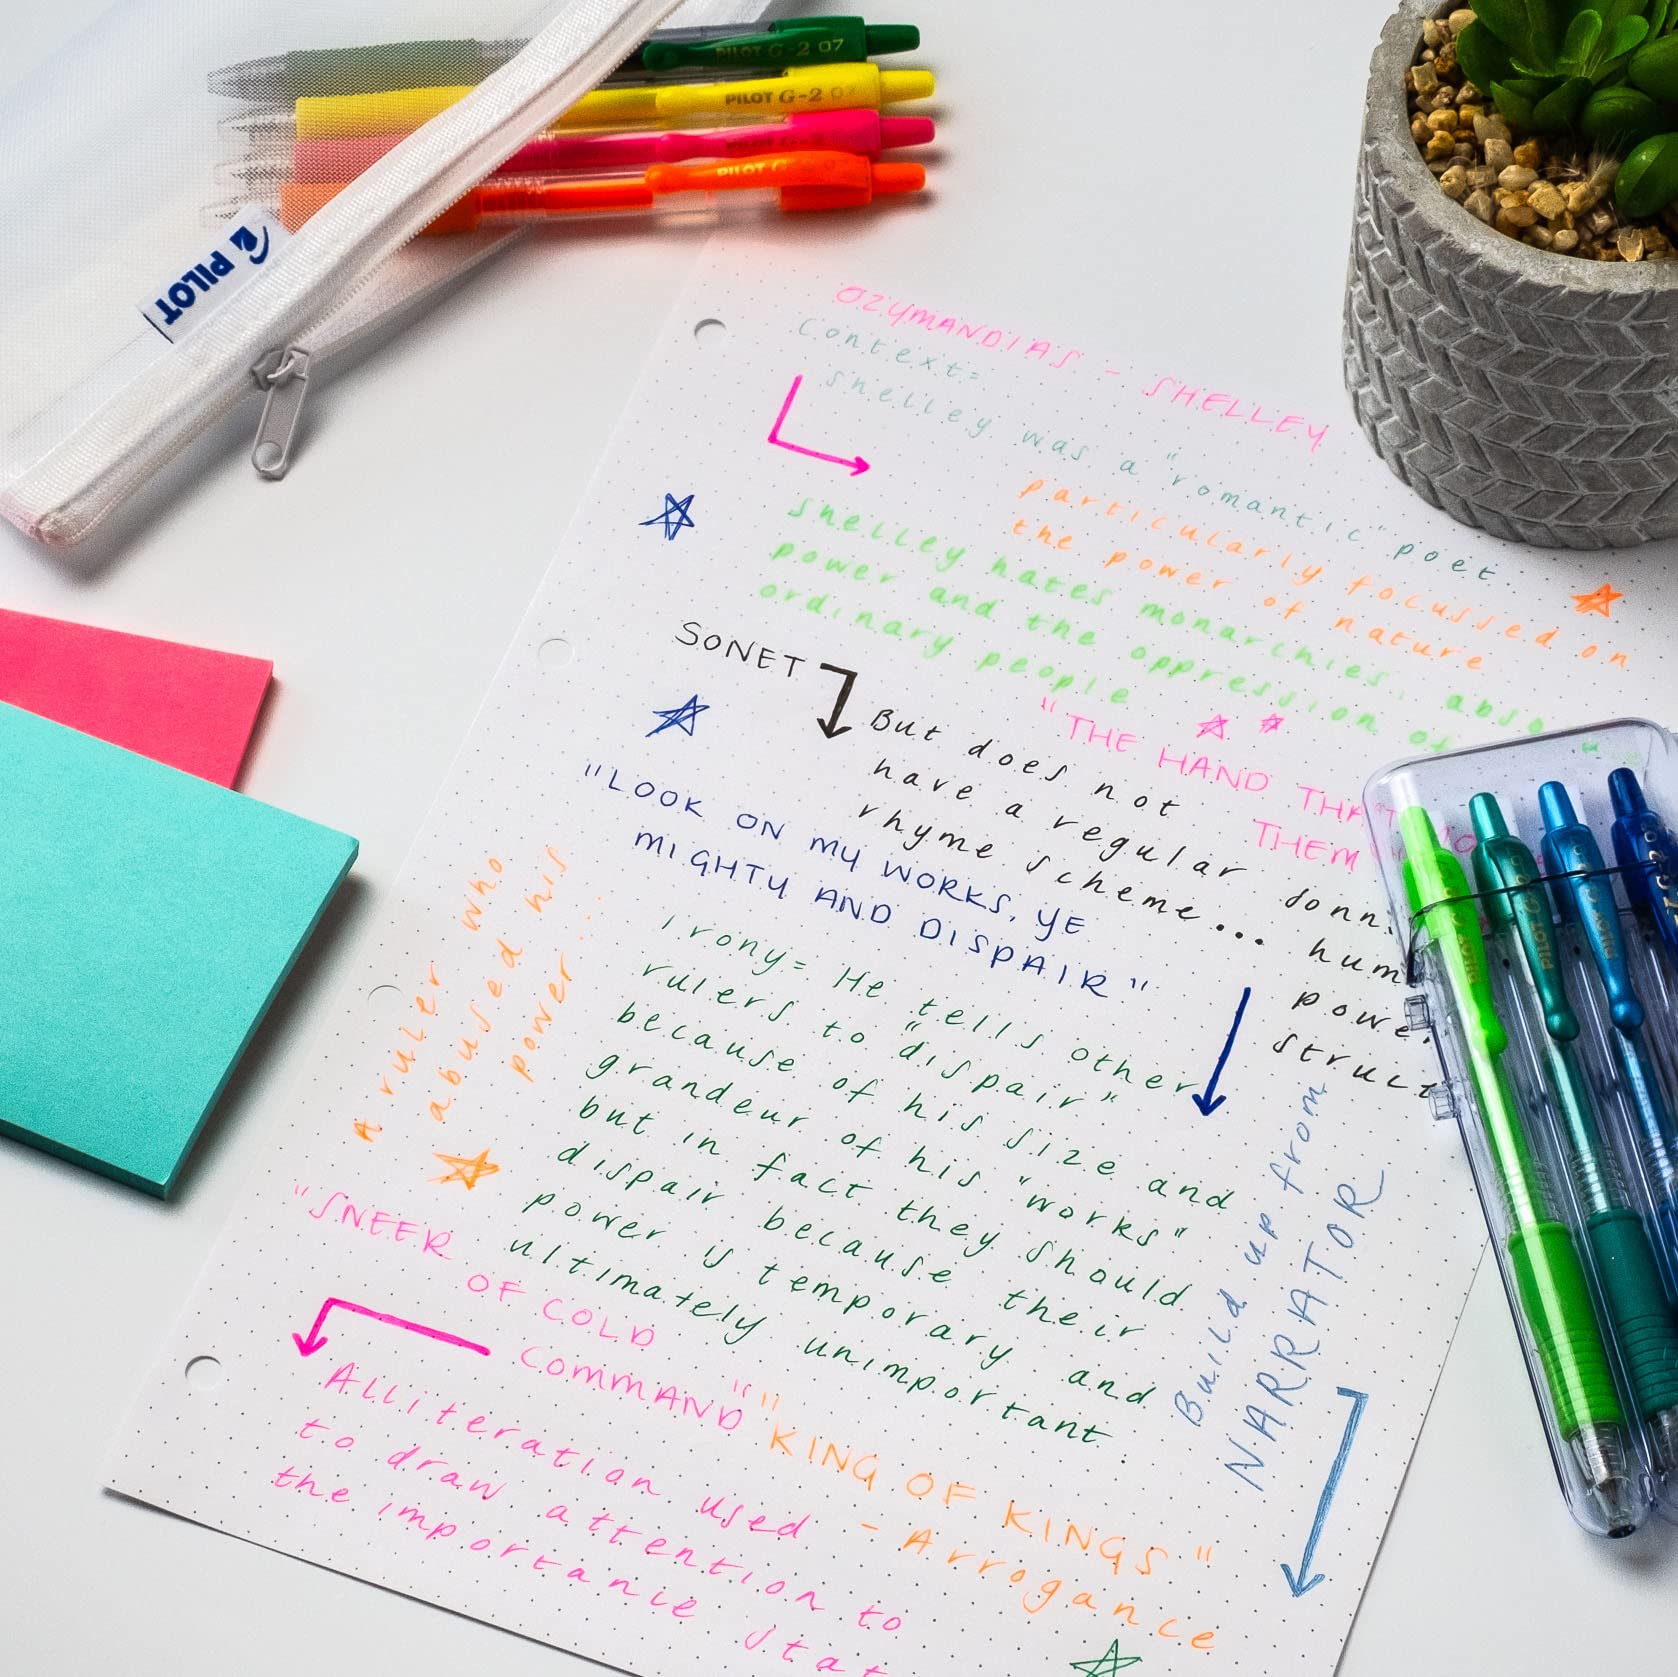 PILOT G-2 07
PILOT G-2 07
PILOT G
PILOT
OZYMANDIAS - SHELLEY
Context=
Shelley was a "romantic" poet
particularly focussed on
the power of nature
Shelley hates monarchies, abso
power and the oppression of
ordinary people
"THE HAND THAT MO
THEM
SONET
But does not
have a regular
rhyme scheme...
hum
power
struct
"LOOK ON MY WORKS, YE
MIGHTY AND DISPAIR"
Irony= He tells other
rulers to "dispair"
because of his size and
grandeur of his "works"
but in fact they should
dispair because their
power is temporary and
ultimately unimportant
A ruler who
abused his
power...
Build up from
NARRATOR
"SNEER
OF COLD
COMMAND"
Alliteration used
to draw attention to
the importance stat
"KING OF KINGS"
- Arrogance
PILOT
PILOT
PILOT